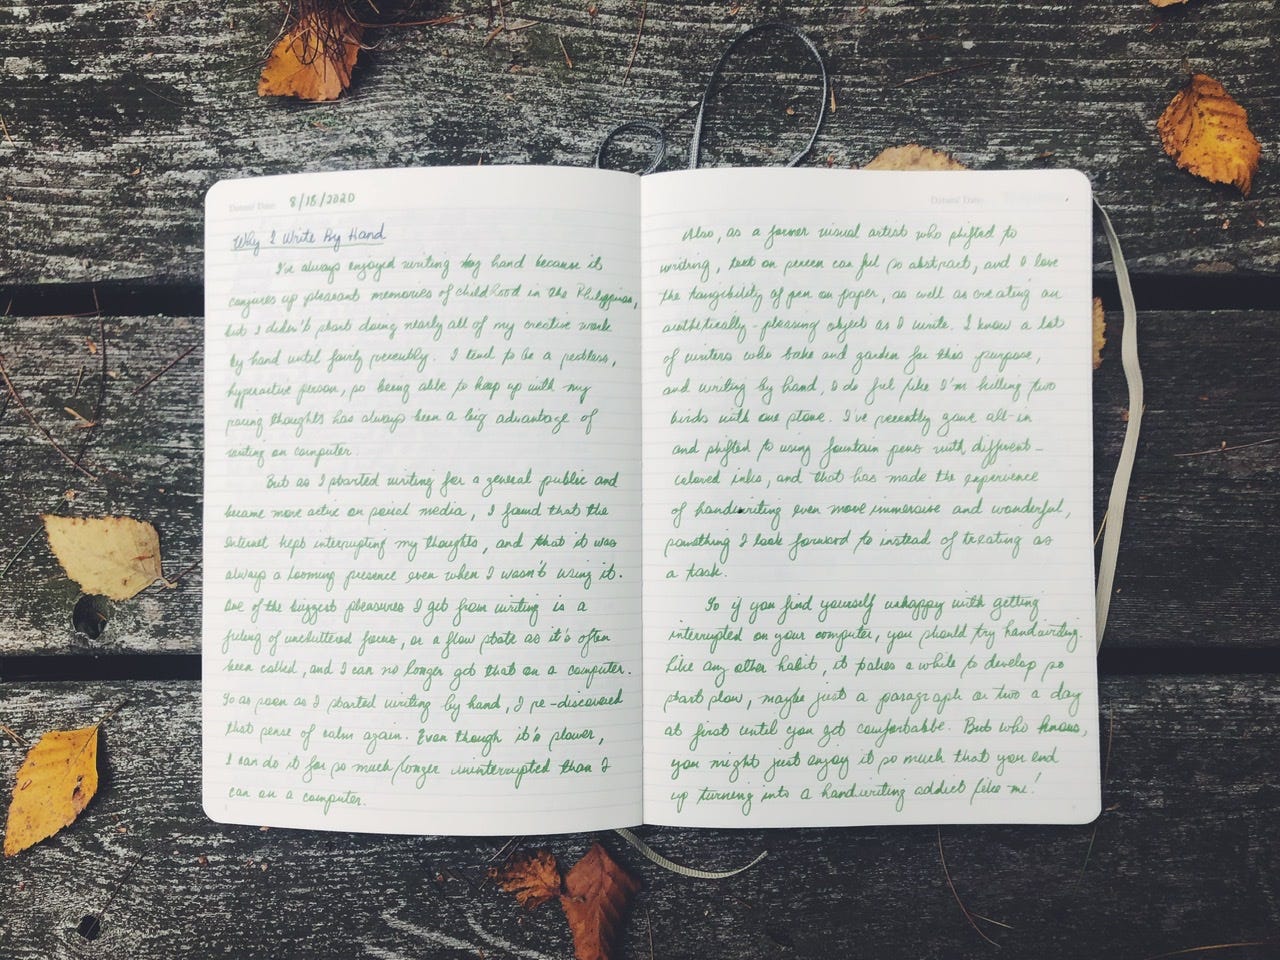 Datum/Date: 8/18/2020
Why I Write By Hand
I've always enjoyed writing by hand because it
conjures up pleasant memories of childhood in the Philippines,
but I didn't start doing nearly all of my creative work
by hand until fairly recently. I tend to be a restless,
hyperactive person, so being able to keep up with my
racing thoughts has always been a big advantage of
writing on computer.
But as I started writing for a general public and
became more active on social media, I found that the
Internet kept interrupting my thoughts, and that it was
always a looming presence even when I wasn't using it.
One of the biggest pleasures I get from writing is a
feeling of uncluttered focus, or a flow state as it's often
been called, and I can no longer get that on a computer.
So as soon as I started writing by hand, I re-discovered
that sense of calm again. Even though it's slower,
I can do it for so much longer uninterrupted than I
can on a computer.
Datum/Date:
Also, as a former visual artist who shifted to
writing, text on screen can feel so abstract, and I love
the tangibility of pen on paper, as well as creating an
aesthetically-pleasing object as I write. I know a lot
of writers who bake and garden for this purpose,
and writing by hand, I do feel like I'm killing two
birds with one stone. I've recently gone all-in
and shifted to using fountain pens with different-
colored inks, and that has made the experience
of handwriting even more immersive and wonderful,
something I look forward to instead of treating as
a task.
So if you find yourself unhappy with getting
interrupted on your computer, you should try handwriting.
Like any other habit, it takes a while to develop so
start slow, maybe just a paragraph or two a day
at first until you get comfortable. But who knows,
you might just enjoy it so much that you end
up turning into a handwriting addict like me!